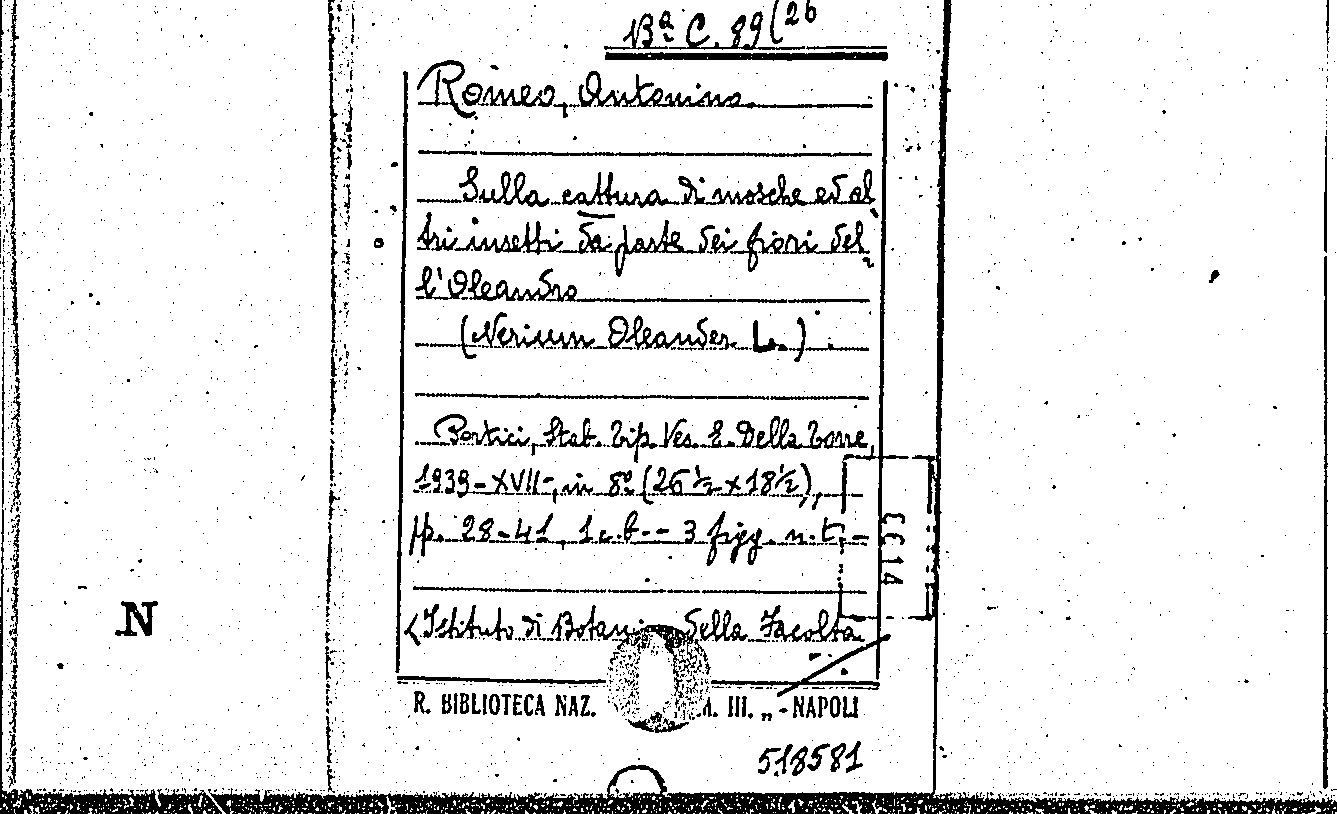 Bª C. 89(26
Romeo, Antonino.
Sulla cattura di mosche ed al
tri insetti da parte dei fiori del
l'Oleandro
(Nerium Oleander L.).
Portici, Stab. Tip. Ves. E. Della Torre,
1939-XVII-, in 8º (26 ½ x 18 ½),
pp. 28-41, 1 c.b. - 3 figg. n.t. -
EE 14
N
(Istituto di della Facoltà
R. BIBLIOTECA NAZ. III. „ - NAPOLI
518581